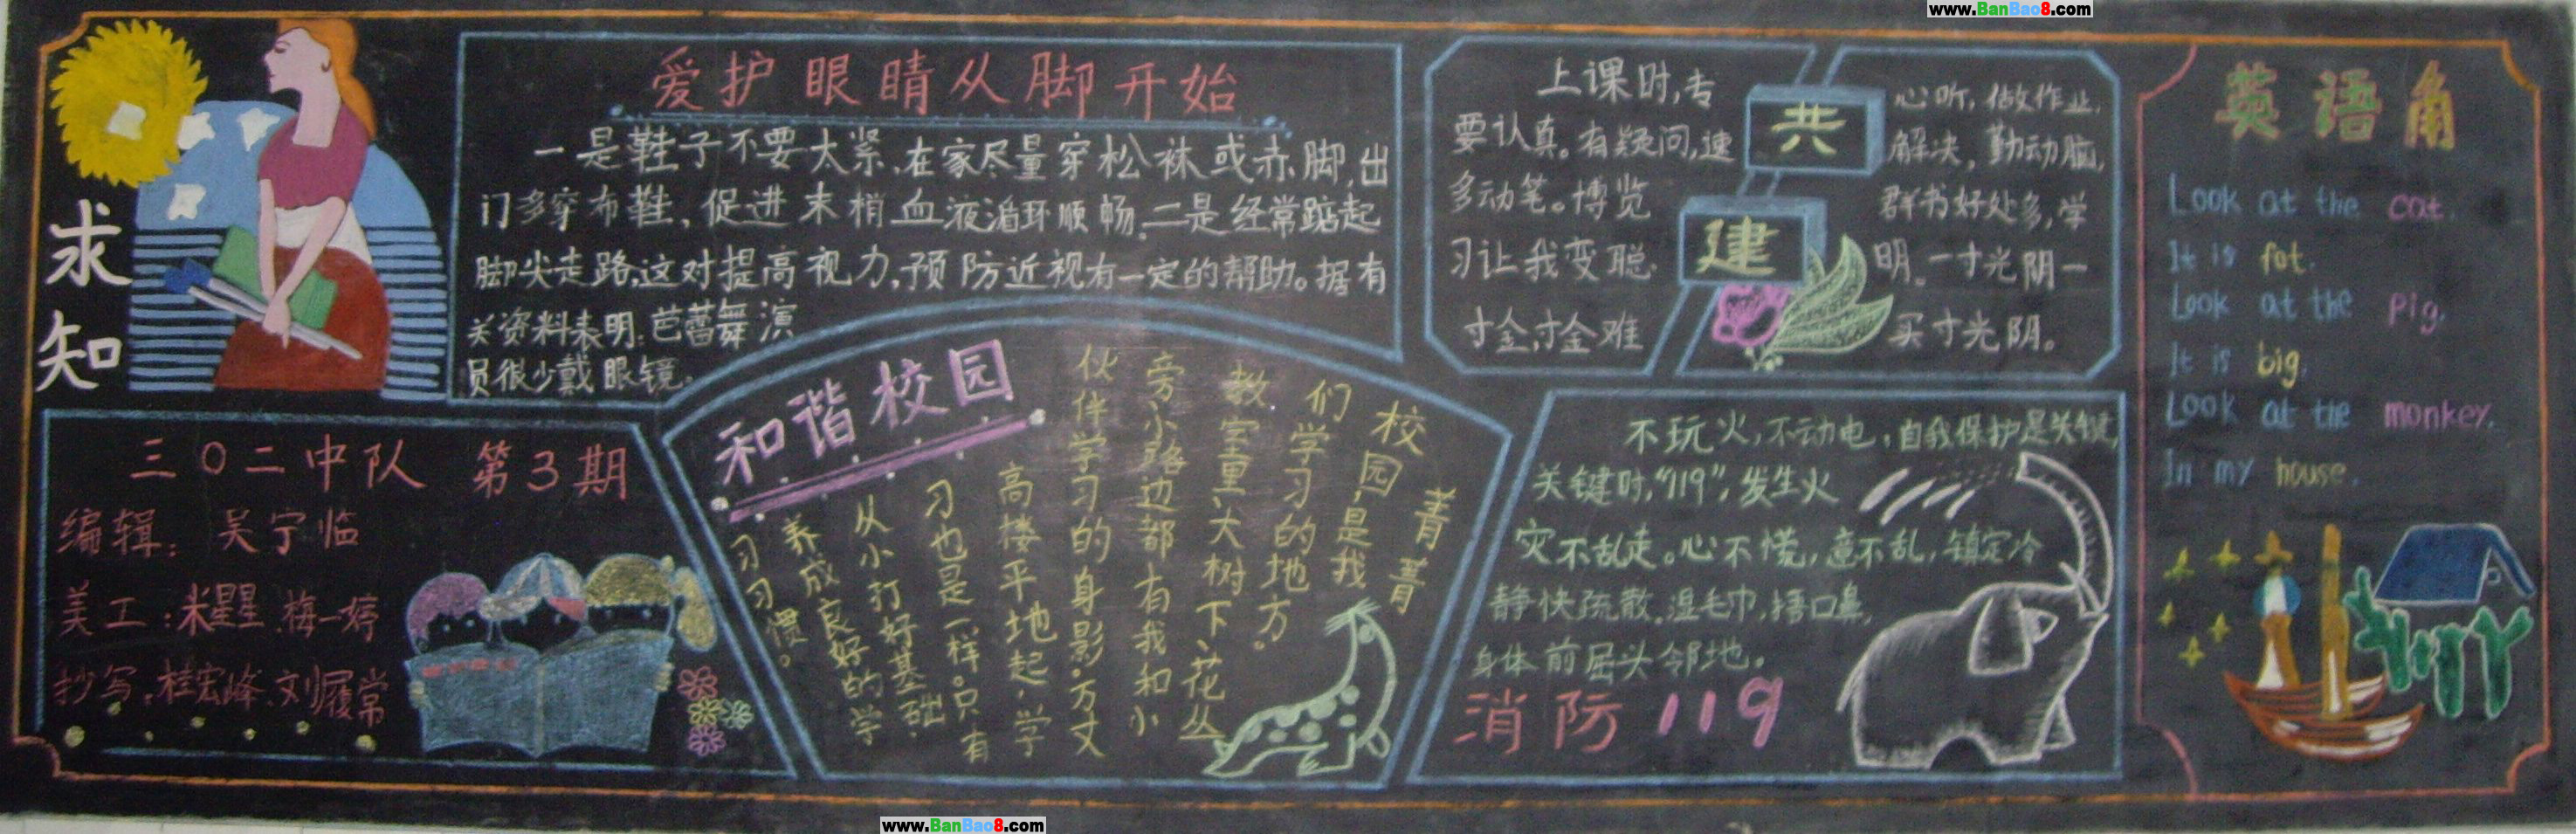 www.BanBao8.com
求知
爱护眼睛从脚开始
一是鞋子不要太紧,在家尽量穿松袜或赤脚,出
门多穿布鞋,促进末梢血液循环顺畅,二是经常踮起
脚尖走路,这对提高视力,预防近视有一定的帮助。据有
关资料表明:芭蕾舞演
员很少戴眼镜。
三〇二中队 第3期
编辑:吴宁临
美工:米星星、梅一婷
抄写:桂宏峰、刘履常
和谐校园
菁菁
校园,是我
们学习的地方。
教室里、大树下、花丛
旁小路边都有我和小
伙伴学习的身影。万丈
高楼平地起,学
习也是一样。只有
从小打好基础,
养成良好的学
习习惯。
共建
上课时,专心听,做作业,
要认真。有疑问,速解决,勤动脑,
多动笔。博览群书好处多,学
习让我变聪明。一寸光阴一
寸金,寸金难买寸光阴。
不玩火,不动电,自我保护是关键,
关键时,“119”,发生火
灾不乱走。心不慌,意不乱,镇定冷
静快疏散。湿毛巾,捂口鼻,
身体前屈头邻地。
消防119
英语角
Look at the cat.
It is fat.
Look at the pig.
It is big.
Look at the monkey.
In my house.
www.BanBao8.com